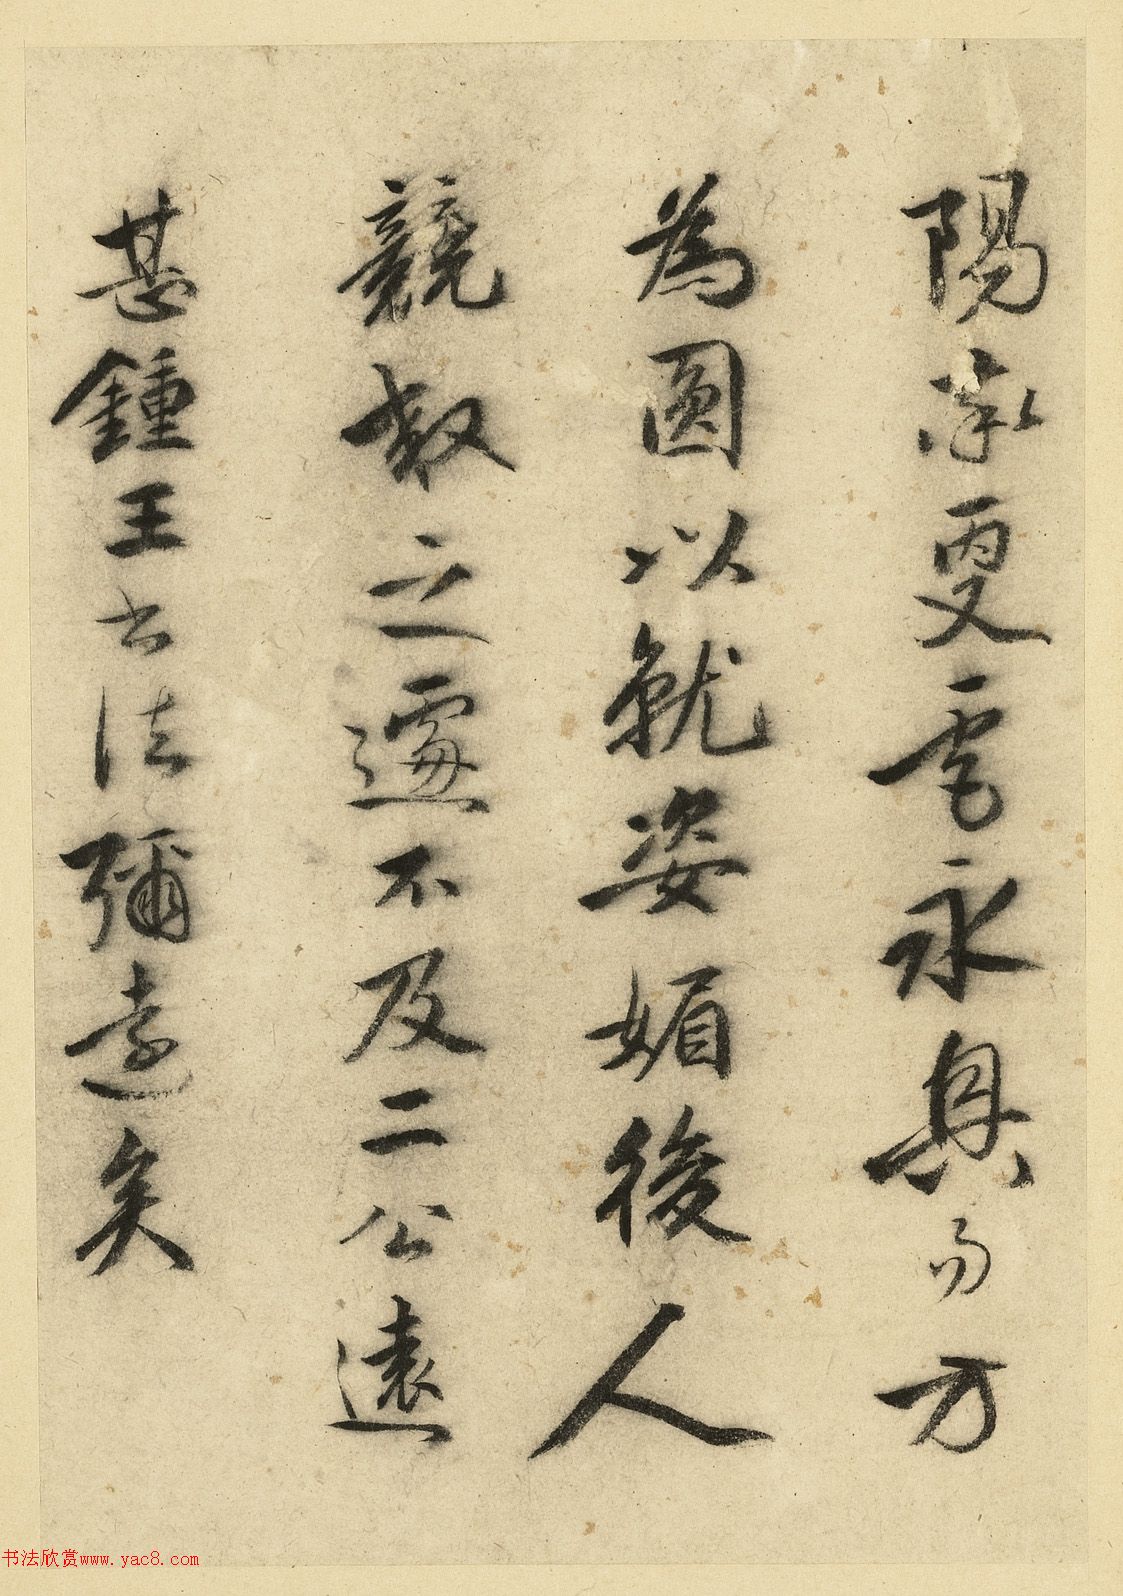 陽率更虞永興易方
為圓以就姿媚後人
競效之遽不及二公遠
甚鍾王書法彌遠矣
书法欣赏www.yac8.com